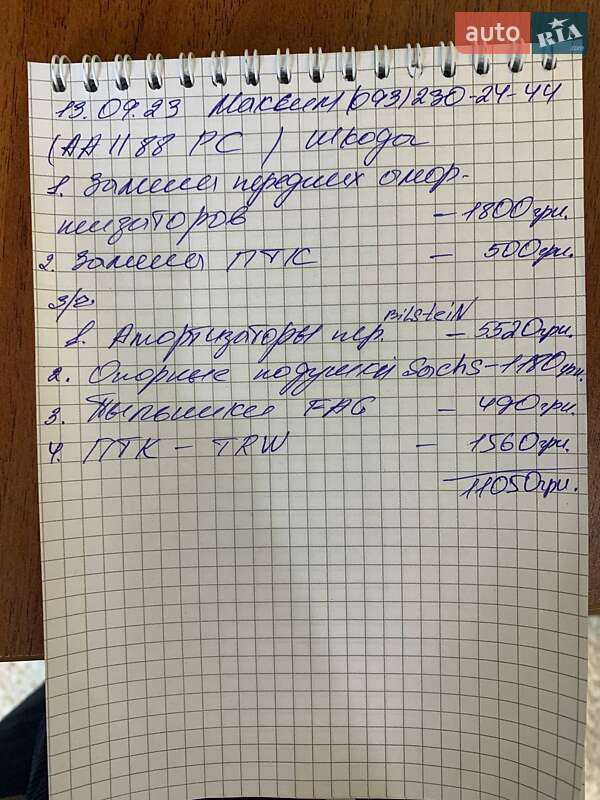 auto RIA .com
13.09.23 Максим (093)230-24-44
(АА1188 РС) Шкода
1. Замена передних амор-
тизаторов - 1800грн.
2. Замена ПТК - 500грн.
З/ч.
1. Амортизаторы пер. BilsteiN - 5520грн.
2. Опорные подушки Sachs - 1180грн.
3. Пыльники FAG - 490грн.
4. ПТК - TRW - 1560грн.
11050грн.